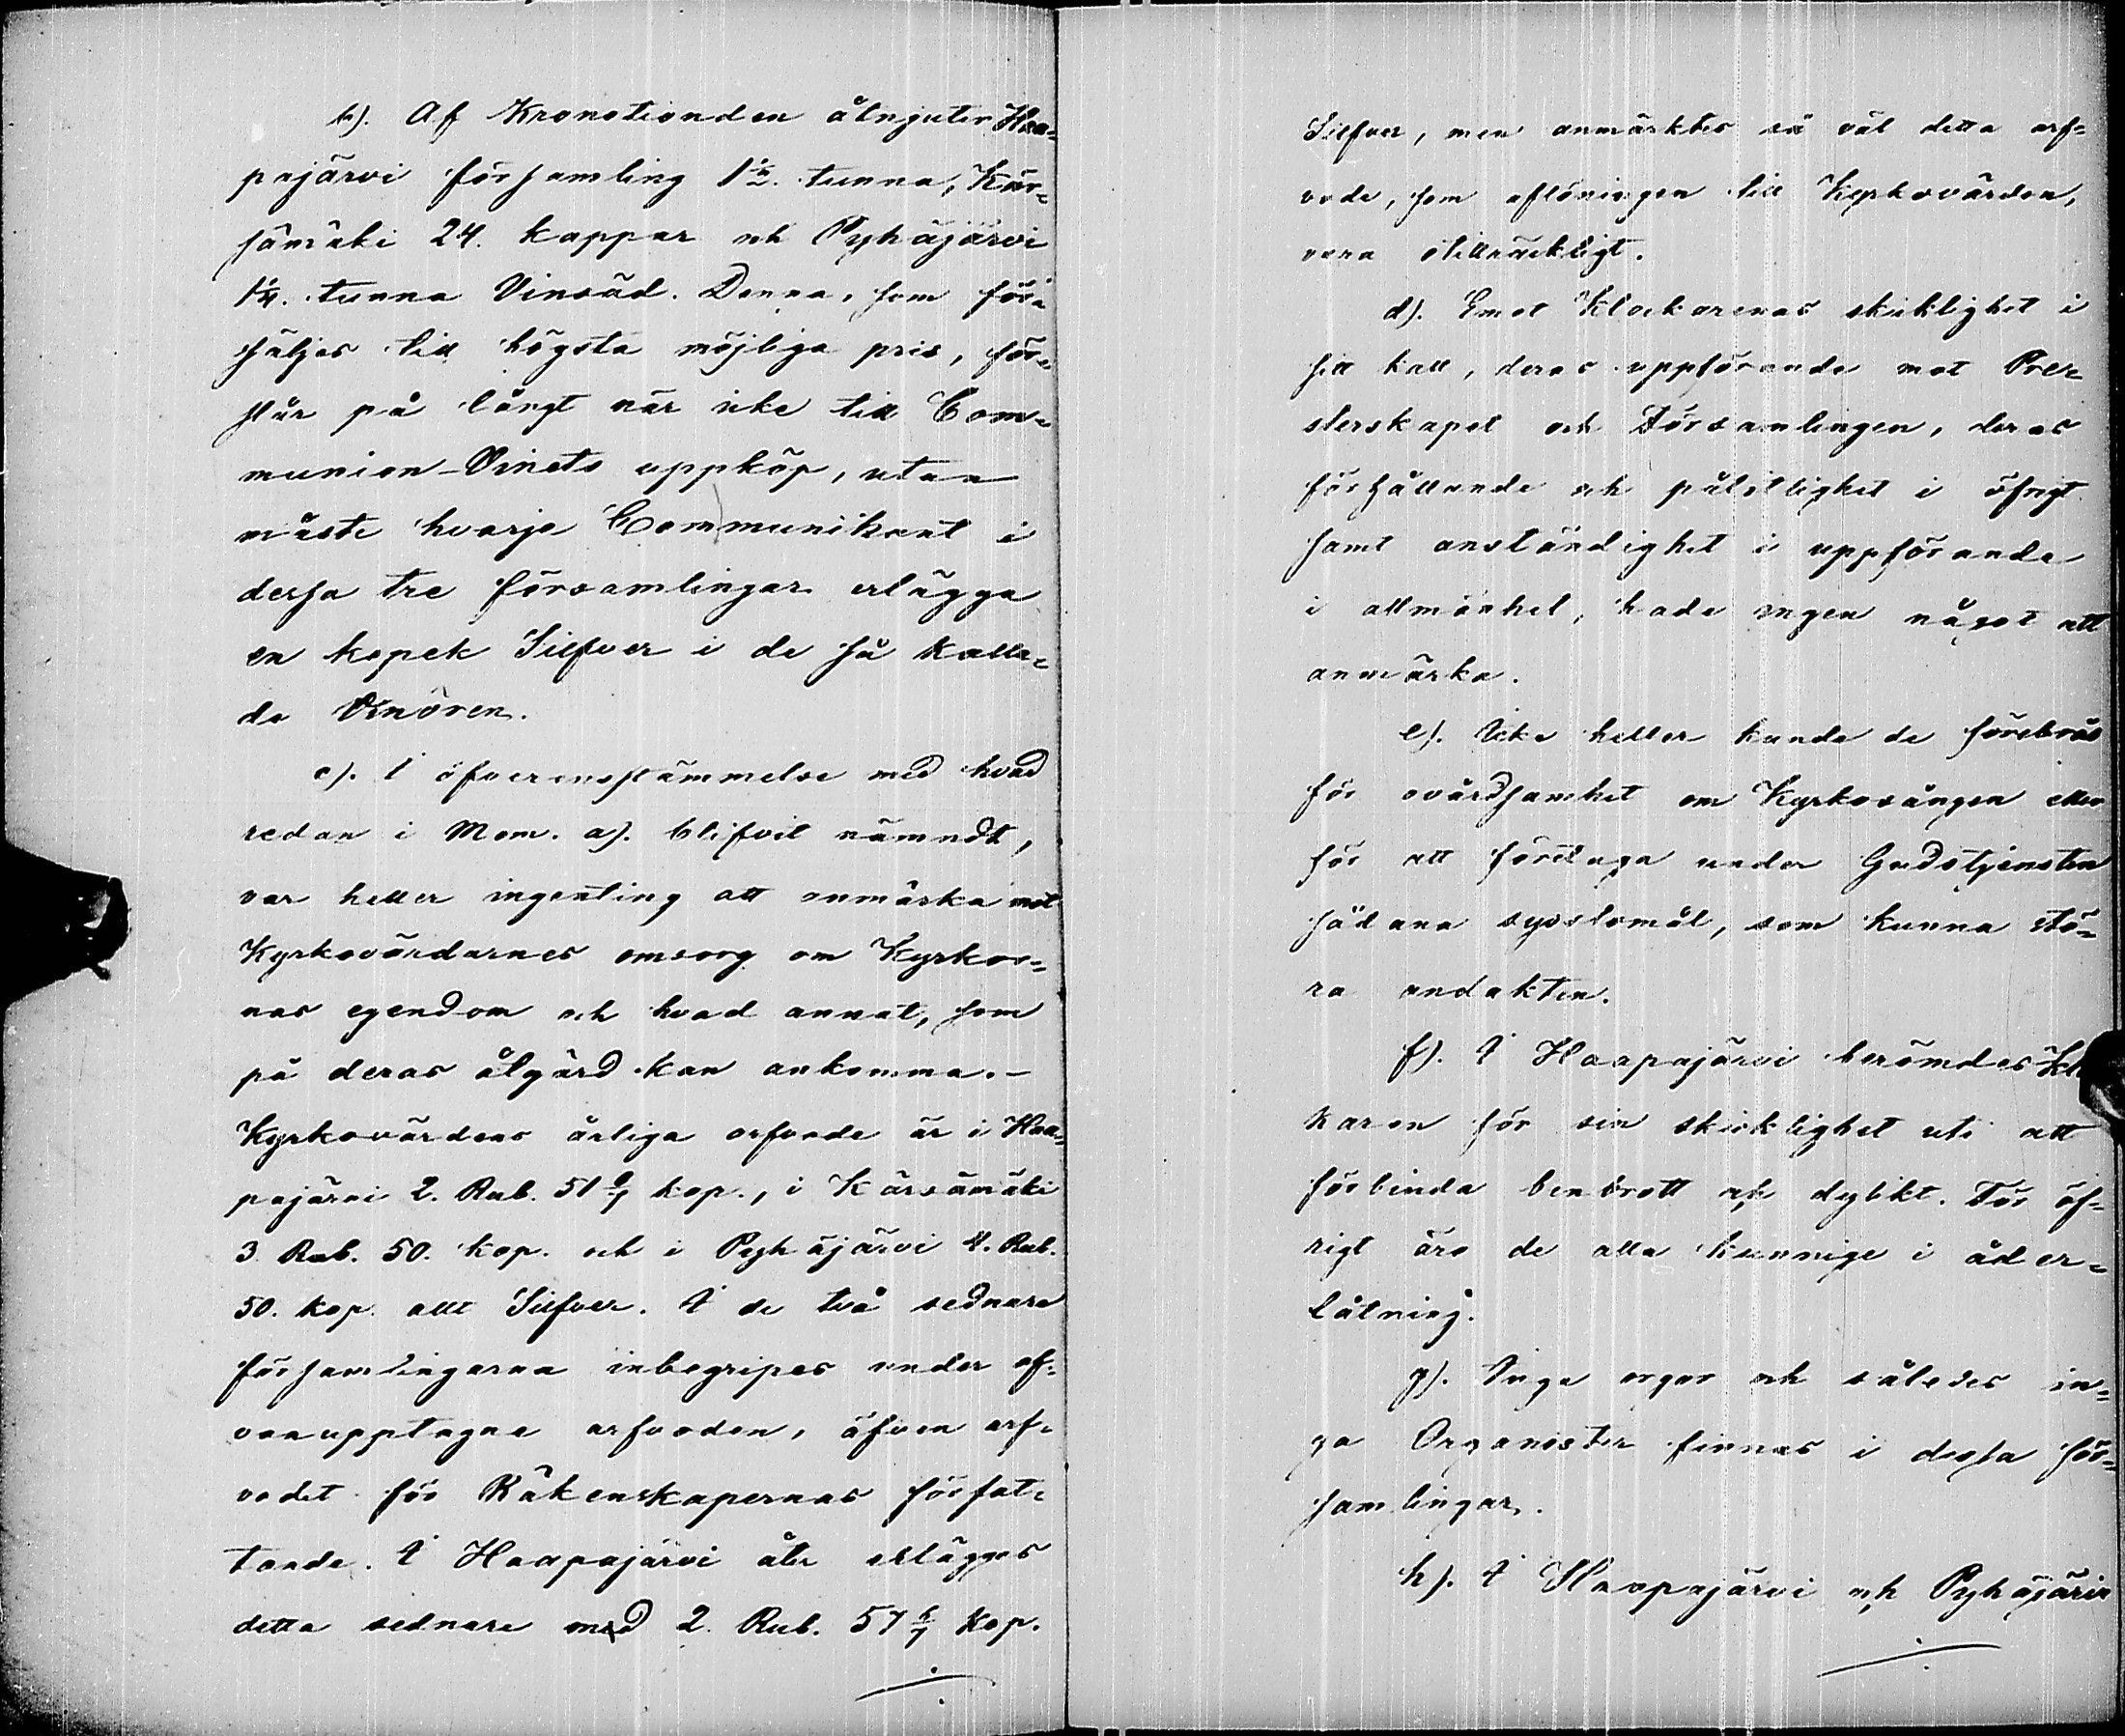 b). Af Kronotionden åtnjuter Haa=
pajärvi församling 1½. tunna, Kär=
sämäki 24. kappar och Pyhäjärvi
1¼. tunna Vinsäd. Denna, som för=
säljes till högsta möjliga pris, för=
slår på långt när icke till Com=
munion-Vinets uppköp, utan
måste hvarje Communikant i
dessa tre församlingar erlägga
en kopek Silfver i de så kalla=
de Vinören.
c). I öfverensstämmelse med hvad
redan i Mom. a). blifvit nämndt,
var heller ingenting att anmärka mot
Kyrkovärdarnes omsorg om Kyrkor=
nas egendom och hvad annat, som
på deras åtgärd kan ankomma.-
Kyrkovärdens årliga arfvode är i Haa=
pajärvi 2. Rub. 51 kop., i Kärsämäki
3 Rub. 50. kop. och i Pyhäjärvi 4. Rub.
50. kop. allt Silfver. I de två sednare
församlingarna inbegripes under of=
vanupptagne arfvoden, äfven arf=
vodet för Räkenskapernas förfat=
tande. I Haapajärvi åter erlägges
detta sednare med 2 Rub. 57 kop.
Silfver, men anmärktes så väl detta arf=
vode, som aflöningen till Kyrkovärden,
vara otillräckligt.
d). Emot Klockarenas skicklighet i
sitt kall, deras uppförande mot Pre=
sterskapet och Församlingen, deras
förhållande och pålitlighet i öfrigt
samt anständighet i uppförande
i allmänhet, hade ingen något att
anmärka.
e). Icke heller kunde de förebrås
för ovårdsamhet om Kyrkosången eller
för att företaga under Gudstjensten
sådana sysslomål, som kunna stö=
ra andakten.
f). I Haapajärvi berömdes
karen för sin skicklighet uti att
förbinda benbrott och dylikt. För öf=
rigt äro de alla kunnige i åder=
låtning.
g). Inga orgor och således in=
ga Organister finnas i dessa för=
samlingar.
h). I Haapajärvi och Pyhäjärvi